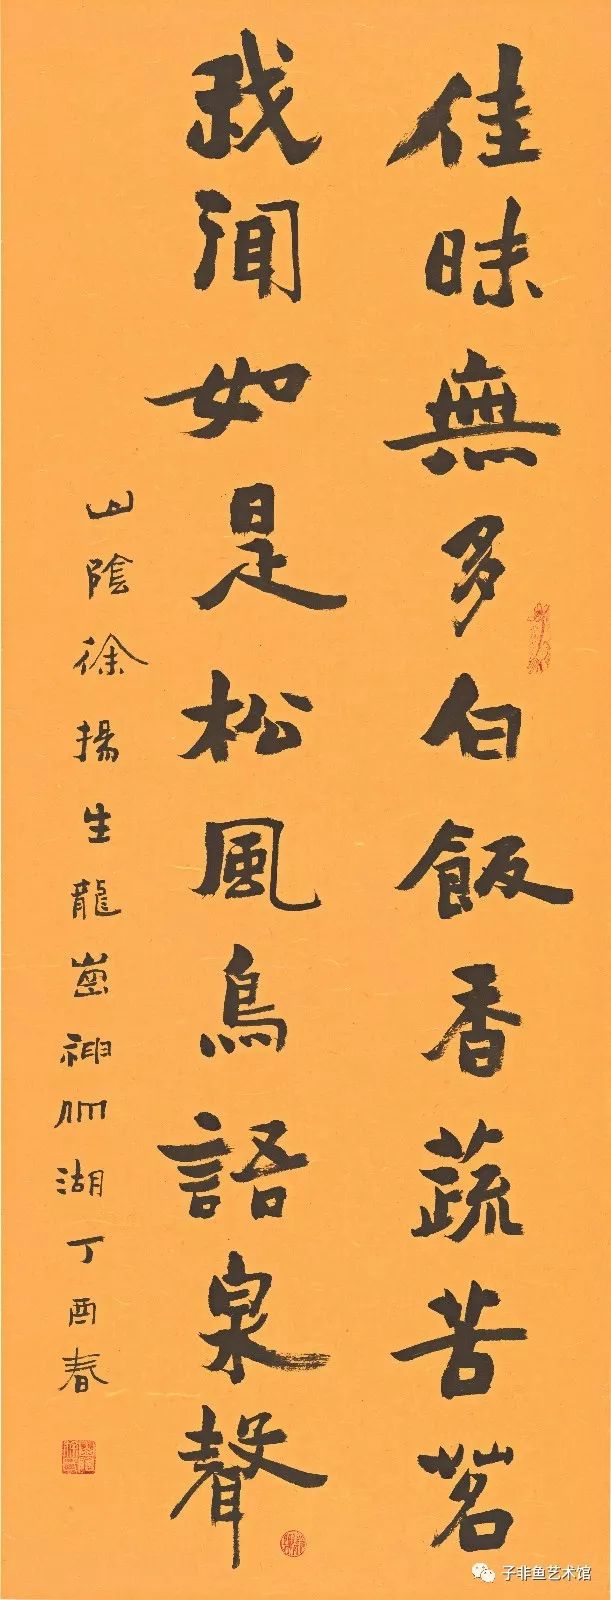 佳味無多白飯香蔬苦茗
我聞如是松風鳥語泉聲
山陰徐揚生龍崗神仙湖丁酉春
子非鱼艺术馆